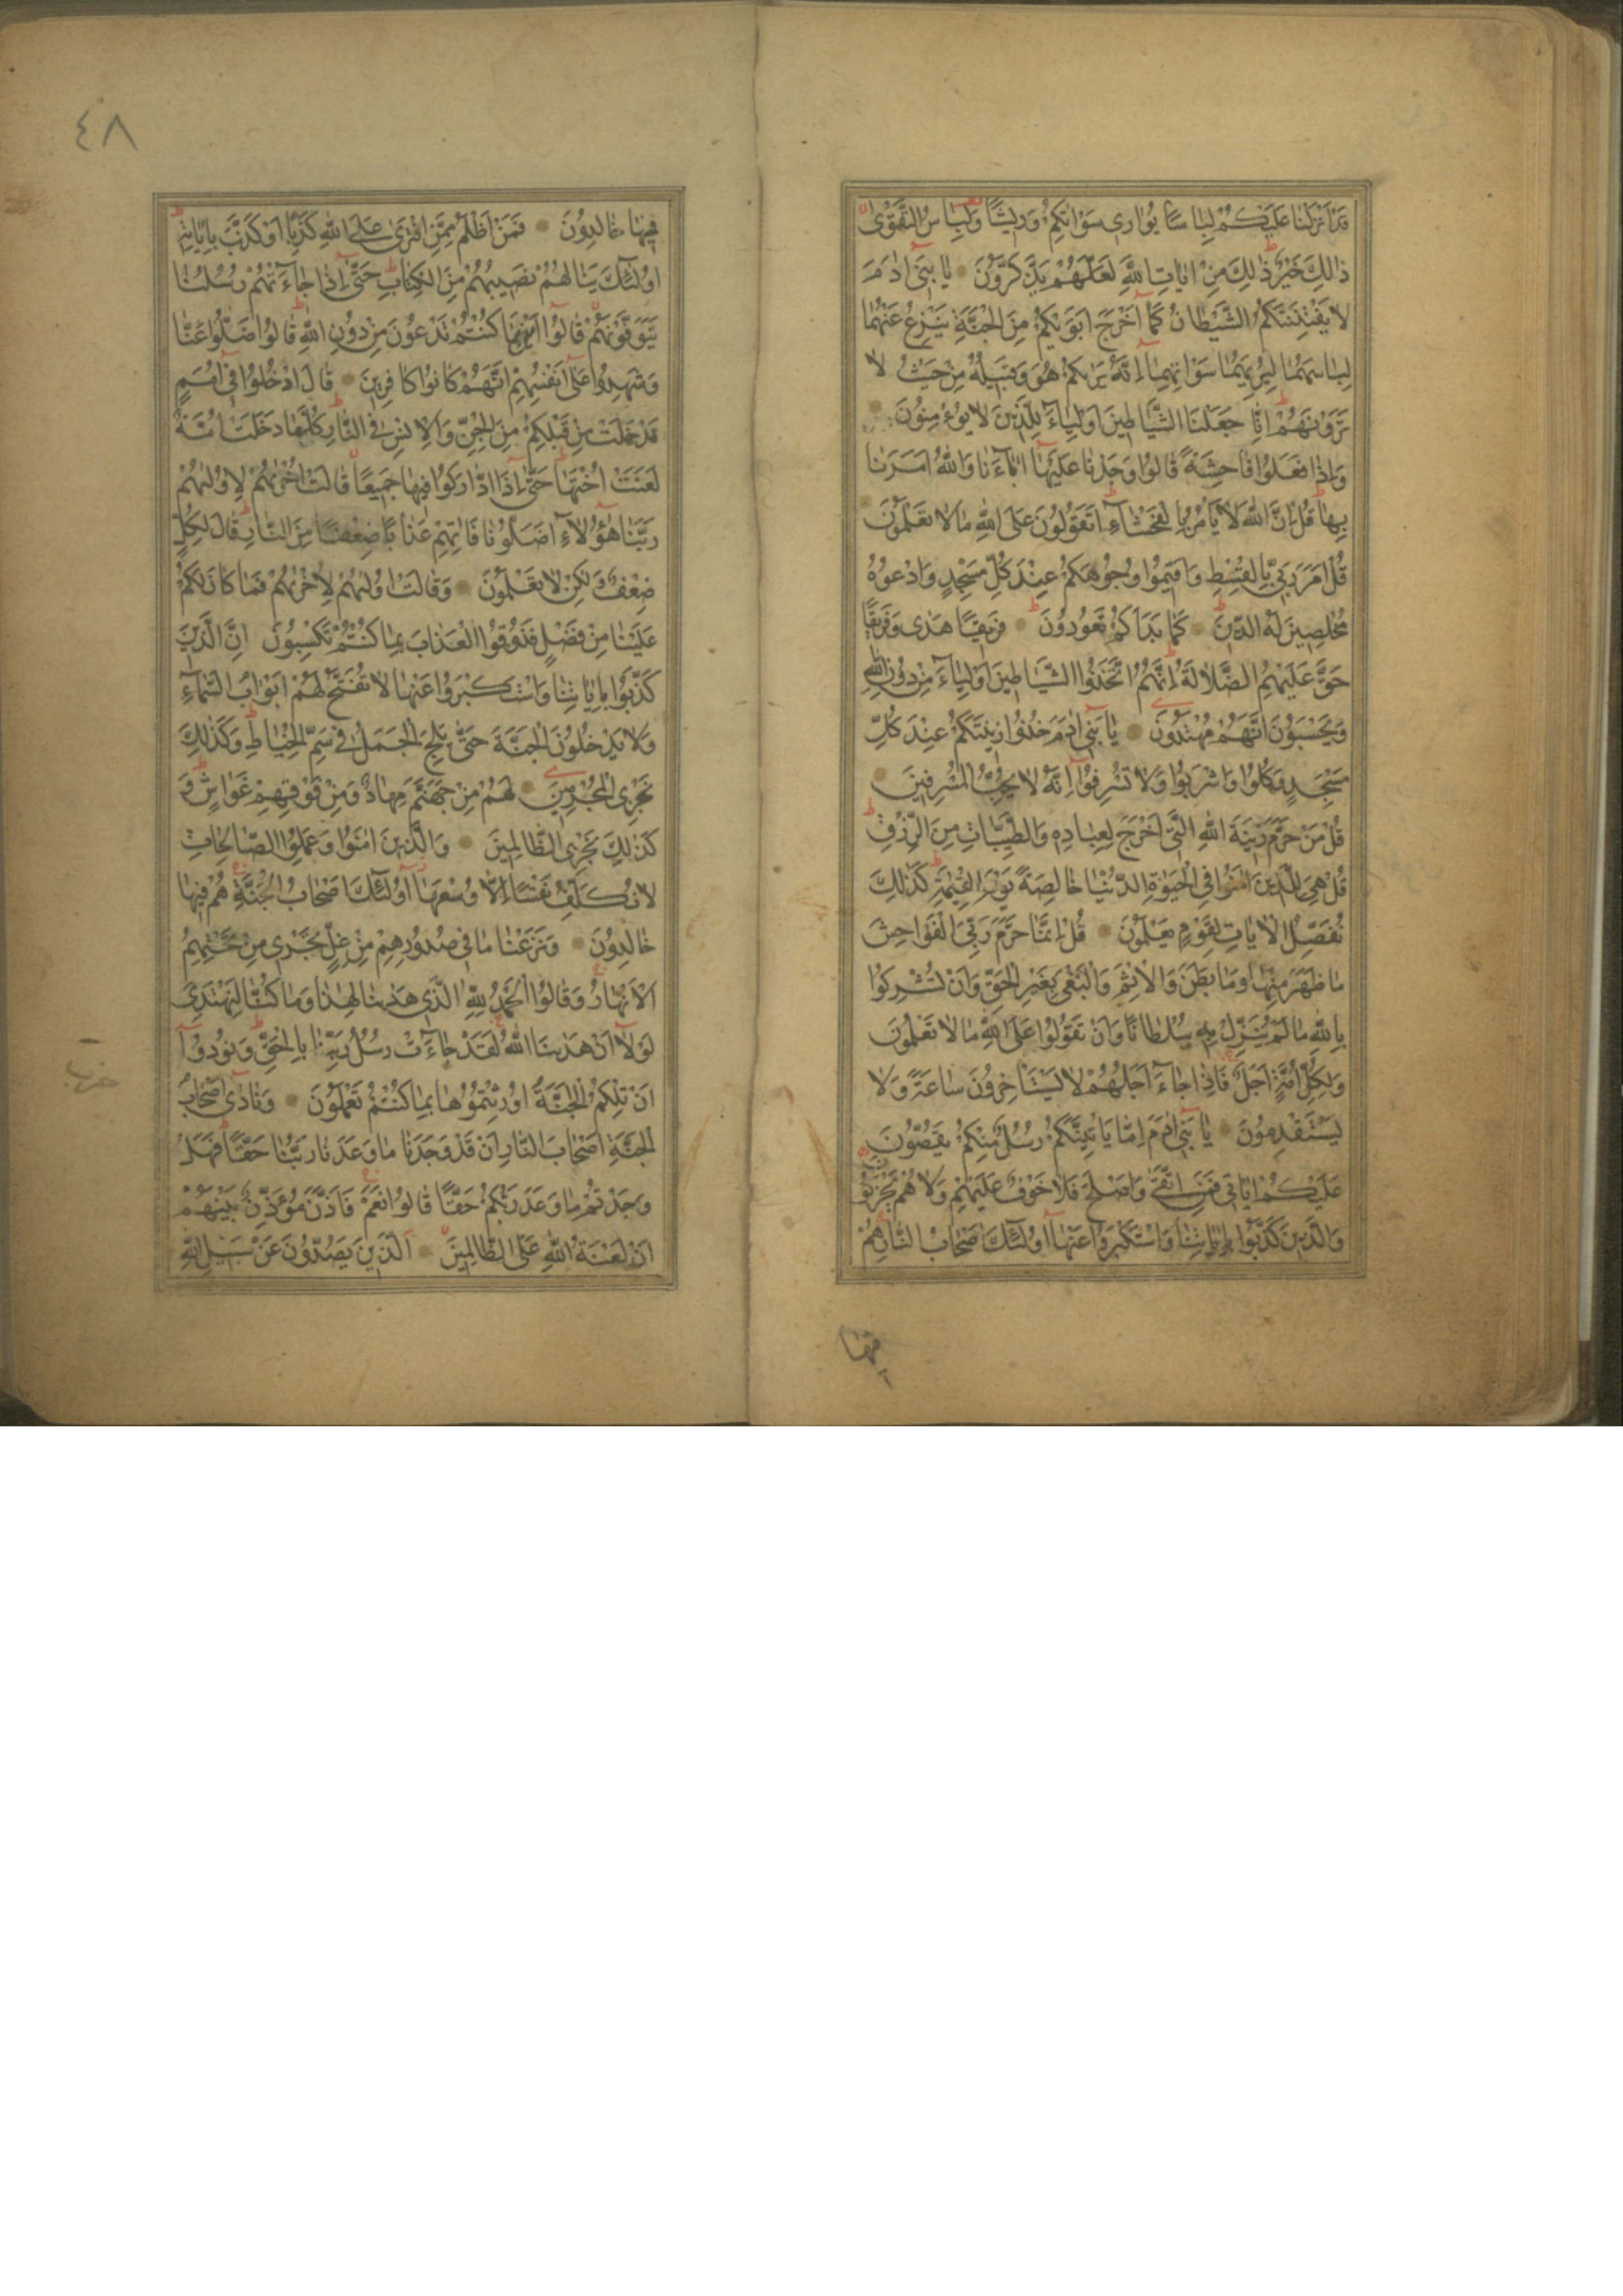 قَدْ اَنْزَلْنَا عَلَيْكُمْ لِبَاسًا يُوَارِي سَوْاتِكُمْ وَرِيشًا وَلِبَاسُ التَّقْوٰى
ذٰلِكَ خَيْرٌ ذٰلِكَ مِنْ اٰيَاتِ اللّٰهِ لَعَلَّهُمْ يَذَّكَّرُونَ يَا بَنِي اٰدَمَ
لَا يَفْتِنَنَّكُمُ الشَّيْطَانُ كَمَا اَخْرَجَ اَبَوَيْكُمْ مِنَ الْجَنَّةِ يَنْزِعُ عَنْهُمَا
لِبَاسَهُمَا لِيُرِيَهُمَا سَوْاٰتِهِمَا اِنَّهُ يَرٰيكُمْ هُوَ وَقَبِيلُهُ مِنْ حَيْثُ لَا
تَرَوْنَهُمْ اِنَّا جَعَلْنَا الشَّيَاطِينَ اَوْلِيَاءَ لِلَّذِينَ لَا يُؤْمِنُونَ
وَاِذَا فَعَلُوا فَاحِشَةً قَالُوا وَجَدْنَا عَلَيْهَا اٰبَاءَنَا وَاللّٰهُ اَمَرَنَا
بِهَا قُلْ اِنَّ اللّٰهَ لَا يَاْمُرُ بِالْفَحْشَاءِ اَتَقُولُونَ عَلَى اللّٰهِ مَا لَا تَعْلَمُونَ
قُلْ اَمَرَ رَبِّي بِالْقِسْطِ وَاَقِيمُوا وُجُوهَكُمْ عِنْدَ كُلِّ مَسْجِدٍ وَادْعُوهُ
مُخْلِصِينَ لَهُ الدِّينَ كَمَا بَدَاَكُمْ تَعُودُونَ فَرِيقًا هَدٰى وَفَرِيقًا
حَقَّ عَلَيْهِمُ الضَّلَالَةُ اِنَّهُمُ اتَّخَذُوا الشَّيَاطِينَ اَوْلِيَاءَ مِنْ دُونِ اللّٰهِ
وَيَحْسَبُونَ اَنَّهُمْ مُهْتَدُونَ يَا بَنِي اٰدَمَ خُذُوا زِينَتَكُمْ عِنْدَ كُلِّ
مَسْجِدٍ وَكُلُوا وَاشْرَبُوا وَلَا تُسْرِفُوا اِنَّهُ لَا يُحِبُّ الْمُسْرِفِينَ
قُلْ مَنْ حَرَّمَ زِينَةَ اللّٰهِ الَّتِي اَخْرَجَ لِعِبَادِهِ وَالطَّيِّبَاتِ مِنَ الرِّزْقِ
قُلْ هِيَ لِلَّذِينَ اٰمَنُوا فِي الْحَيٰوةِ الدُّنْيَا خَالِصَةً يَوْمَ الْقِيٰمَةِ كَذٰلِكَ
نُفَصِّلُ الْاٰيَاتِ لِقَوْمٍ يَعْلَمُونَ قُلْ اِنَّمَا حَرَّمَ رَبِّيَ الْفَوَاحِشَ
مَا ظَهَرَ مِنْهَا وَمَا بَطَنَ وَالْاِثْمَ وَالْبَغْيَ بِغَيْرِ الْحَقِّ وَاَنْ تُشْرِكُوا
بِاللّٰهِ مَا لَمْ يُنَزِّلْ بِهِ سُلْطَانًا وَاَنْ تَقُولُوا عَلَى اللّٰهِ مَا لَا تَعْلَمُونَ
وَلِكُلِّ اُمَّةٍ اَجَلٌ فَاِذَا جَاءَ اَجَلُهُمْ لَا يَسْتَاْخِرُونَ سَاعَةً وَلَا
يَسْتَقْدِمُونَ يَا بَنِي اٰدَمَ اِمَّا يَاْتِيَنَّكُمْ رُسُلٌ مِنْكُمْ يَقُصُّونَ
عَلَيْكُمْ اٰيَاتِي فَمَنِ اتَّقٰى وَاَصْلَحَ فَلَا خَوْفٌ عَلَيْهِمْ وَلَا هُمْ يَحْزَنُونَ
وَالَّذِينَ كَذَّبُوا بِاٰيَاتِنَا وَاسْتَكْبَرُوا عَنْهَا اُولٰئِكَ اَصْحَابُ النَّارِ هُمْ
فيها
٤٨
فِيهَا خَالِدُونَ فَمَنْ اَظْلَمُ مِمَّنِ افْتَرٰى عَلَى اللّٰهِ كَذِبًا اَوْ كَذَّبَ بِاٰيَاتِهِ
اُولٰئِكَ يَنَالُهُمْ نَصِيبُهُمْ مِنَ الْكِتَابِ حَتّٰى اِذَا جَاءَتْهُمْ رُسُلُنَا
يَتَوَفَّوْنَهُمْ قَالُوا اَيْنَمَا كُنْتُمْ تَدْعُونَ مِنْ دُونِ اللّٰهِ قَالُوا ضَلُّوا عَنَّا
وَشَهِدُوا عَلٰى اَنْفُسِهِمْ اَنَّهُمْ كَانُوا كَافِرِينَ قَالَ ادْخُلُوا فِي اُمَمٍ
قَدْ خَلَتْ مِنْ قَبْلِكُمْ مِنَ الْجِنِّ وَالْاِنْسِ فِي النَّارِ كُلَّمَا دَخَلَتْ اُمَّةٌ
لَعَنَتْ اُخْتَهَا حَتّٰى اِذَا ادَّارَكُوا فِيهَا جَمِيعًا قَالَتْ اُخْرٰيهُمْ لِاُولٰيهُمْ
رَبَّنَا هٰؤُلَاءِ اَضَلُّونَا فَاٰتِهِمْ عَذَابًا ضِعْفًا مِنَ النَّارِ قَالَ لِكُلٍّ
ضِعْفٌ وَلٰكِنْ لَا تَعْلَمُونَ وَقَالَتْ اُولٰيهُمْ لِاُخْرٰيهُمْ فَمَا كَانَ لَكُمْ
عَلَيْنَا مِنْ فَضْلٍ فَذُوقُوا الْعَذَابَ بِمَا كُنْتُمْ تَكْسِبُونَ اِنَّ الَّذِينَ
كَذَّبُوا بِاٰيَاتِنَا وَاسْتَكْبَرُوا عَنْهَا لَا تُفَتَّحُ لَهُمْ اَبْوَابُ السَّمَاءِ
وَلَا يَدْخُلُونَ الْجَنَّةَ حَتّٰى يَلِجَ الْجَمَلُ فِي سَمِّ الْخِيَاطِ وَكَذٰلِكَ
نَجْزِي الْمُجْرِمِينَ لَهُمْ مِنْ جَهَنَّمَ مِهَادٌ وَمِنْ فَوْقِهِمْ غَوَاشٍ وَ
كَذٰلِكَ نَجْزِي الظَّالِمِينَ وَالَّذِينَ اٰمَنُوا وَعَمِلُوا الصَّالِحَاتِ
لَا نُكَلِّفُ نَفْسًا اِلَّا وُسْعَهَا اُولٰئِكَ اَصْحَابُ الْجَنَّةِ هُمْ فِيهَا
خَالِدُونَ وَنَزَعْنَا مَا فِي صُدُورِهِمْ مِنْ غِلٍّ تَجْرِي مِنْ تَحْتِهِمُ
الْاَنْهَارُ وَقَالُوا الْحَمْدُ لِلّٰهِ الَّذِي هَدٰينَا لِهٰذَا وَمَا كُنَّا لِنَهْتَدِيَ
لَوْلَا اَنْ هَدٰينَا اللّٰهُ لَقَدْ جَاءَتْ رُسُلُ رَبِّنَا بِالْحَقِّ وَنُودُوا
اَنْ تِلْكُمُ الْجَنَّةُ اُورِثْتُمُوهَا بِمَا كُنْتُمْ تَعْمَلُونَ وَنَادٰى اَصْحَابُ
الْجَنَّةِ اَصْحَابَ النَّارِ اَنْ قَدْ وَجَدْنَا مَا وَعَدَنَا رَبُّنَا حَقًّا فَهَلْ
وَجَدْتُمْ مَا وَعَدَ رَبُّكُمْ حَقًّا قَالُوا نَعَمْ فَاَذَّنَ مُؤَذِّنٌ بَيْنَهُمْ
اَنْ لَعْنَةُ اللّٰهِ عَلَى الظَّالِمِينَ اَلَّذِينَ يَصُدُّونَ عَنْ سَبِيلِ اللّٰهِ
حزب